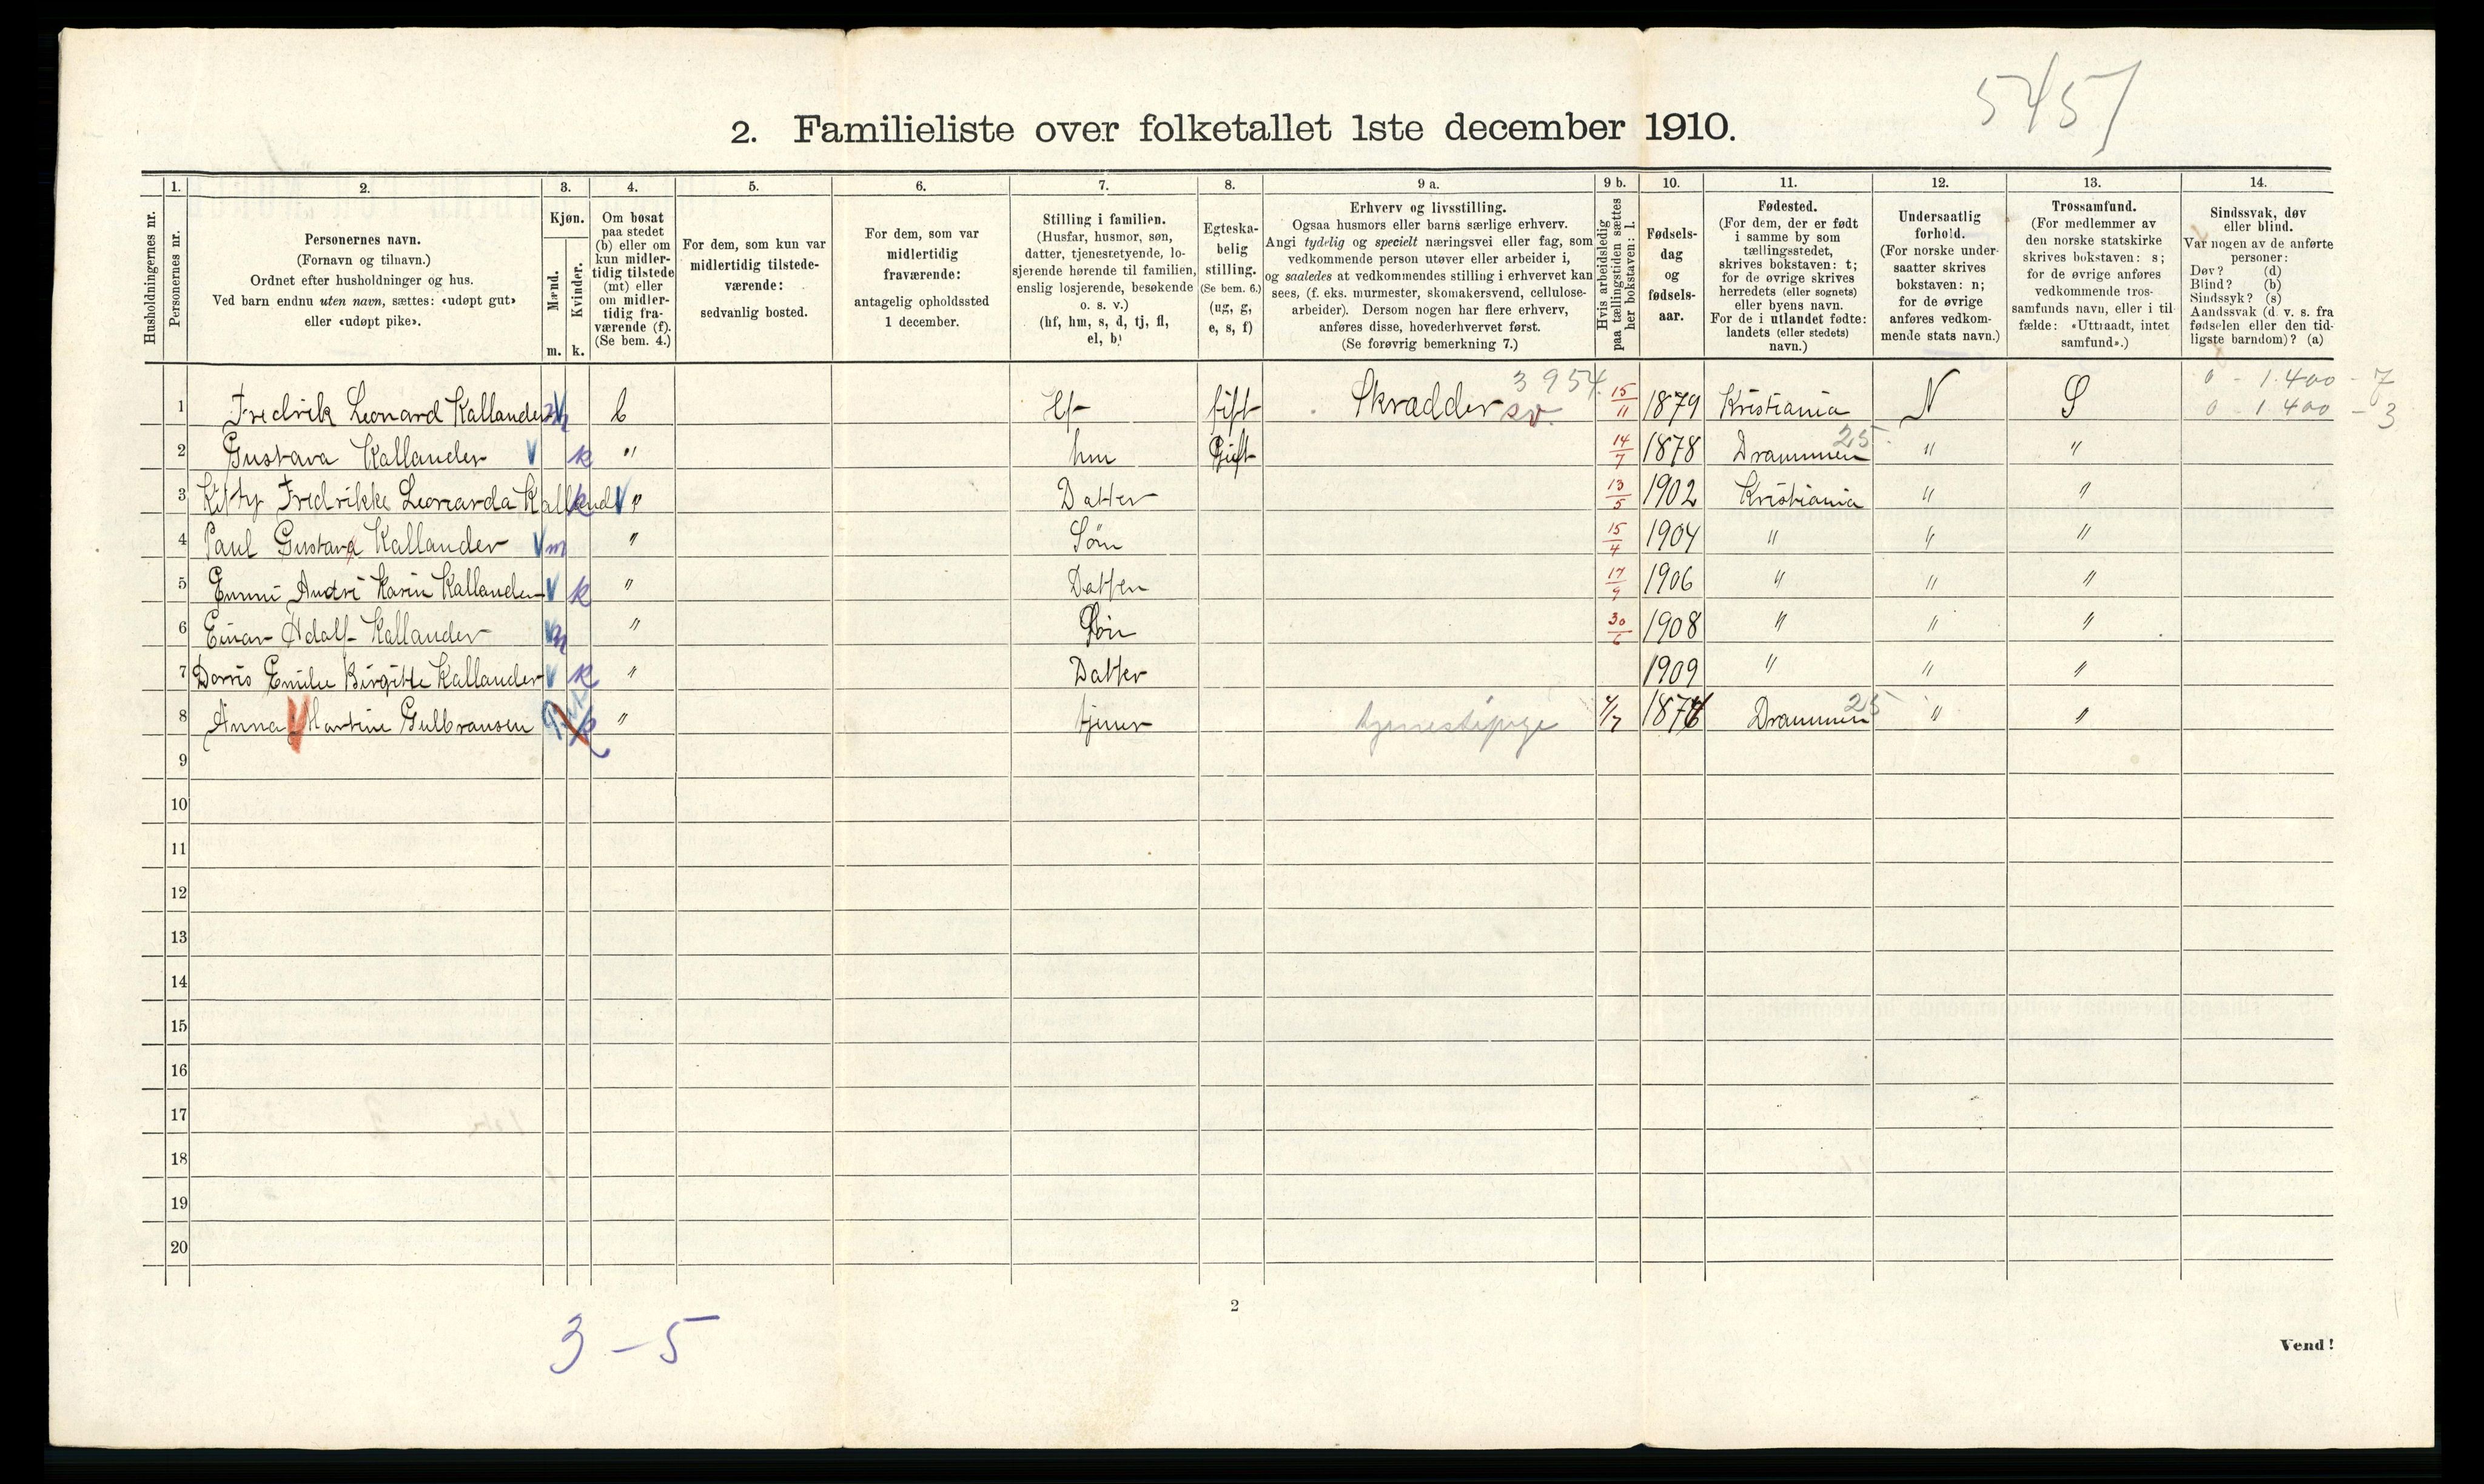 5451
2. Familieliste over folketallet 1ste december 1910.
1. 2. 3. 4. 5. 6. 7. 8. 9 a. 9 b. 10. 11. 12. 13. 14.
Husholdningernes nr.
Personernes nr.
Personernes navn.
(Fornavn og tilnavn.)
Ordnet efter husholdninger og hus.
Ved barn endnu uten navn, sættes: «udøpt gut»
eller «udøpt pike».
Kjøn.
Mænd.
Kvinder.
m. k.
Om bosat
paa stedet
(b) eller om
kun midler-
tidig tilstede
(mt) eller
om midler-
tidig fra-
værende (f).
(Se bem. 4.)
For dem, som kun var
midlertidig tilstede-
værende:
sedvanlig bosted.
For dem, som var
midlertidig
fraværende:
antagelig opholdssted
1 december.
Stilling i familien.
(Husfar, husmor, søn,
datter, tjenestetyende, lo-
sjerende hørende til familien,
enslig losjerende, besøkende
o. s. v.)
(hf, hm, s, d, tj, fl,
el, b)
Egteska-
belig
stilling.
(Se bem. 6.)
(ug, g,
e, s, f)
Erhverv og livsstilling.
Ogsaa husmors eller barns særlige erhverv.
Angi tydelig og specielt næringsvei eller fag, som
vedkommende person utøver eller arbeider i,
og saaledes at vedkommendes stilling i erhvervet kan
sees, (f. eks. murmester, skomakersvend, cellulose-
arbeider). Dersom nogen har flere erhverv,
anføres disse, hovederhvervet først.
(Se forøvrig bemerkning 7.)
Hvis arbeidsledig
paa tællingstiden sættes
her bokstaven: l.
Fødsels-
dag
og
fødsels-
aar.
Fødested.
(For dem, der er født
i samme by som
tællingsstedet,
skrives bokstaven: t;
for de øvrige skrives
herredets (eller sognets)
eller byens navn.
For de i utlandet fødte:
landets (eller stedets)
navn.)
Undersaatlig
forhold.
(For norske under-
saatter skrives
bokstaven: n;
for de øvrige
anføres vedkom-
mende stats navn.)
Trossamfund.
(For medlemmer av
den norske statskirke
skrives bokstaven: s;
for de øvrige anføres
vedkommende tros-
samfunds navn, eller i til-
fælde: «Uttraadt, intet
samfund».)
Sindssvak, døv
eller blind.
Var nogen av de anførte
personer:
Døv? (d)
Blind? (b)
Sindssyk? (s)
Aandssvak (d. v. s. fra
fødselen eller den tid-
ligste barndom)? (a)
1 Fredrik Leonard Kallander m b Hf gift Skrædder sv. 3954. 15/11 1879 Kristiania N S 0 - 1.400 - 7
0 - 1 400 - 3
2 Gustava Kallander k " hm Gift 14/7 1878 Drammen 25. " "
3 Kitty Fredrikke Leonarda Kalland k " Datter 13/5 1902 Kristiania " "
4 Paul Gustava Kallander m " Søn 15/4 1904 " " "
5 Enmi Andri Karin Kallander k " Datter 17/9 1906 " " "
6 Einar Adolf Kallander m " Søn 30/6 1908 " " "
7 Dorris Emilie Birgitte Kallander k " Datter 1909 " " "
8 Anna Martine Gulbransen k " tjener tjenestepige 4/7 1874 Drammen 25 " "
9
10
11
12
13
14
15
16
17
18
19
20
2
3 - 5
Vend!